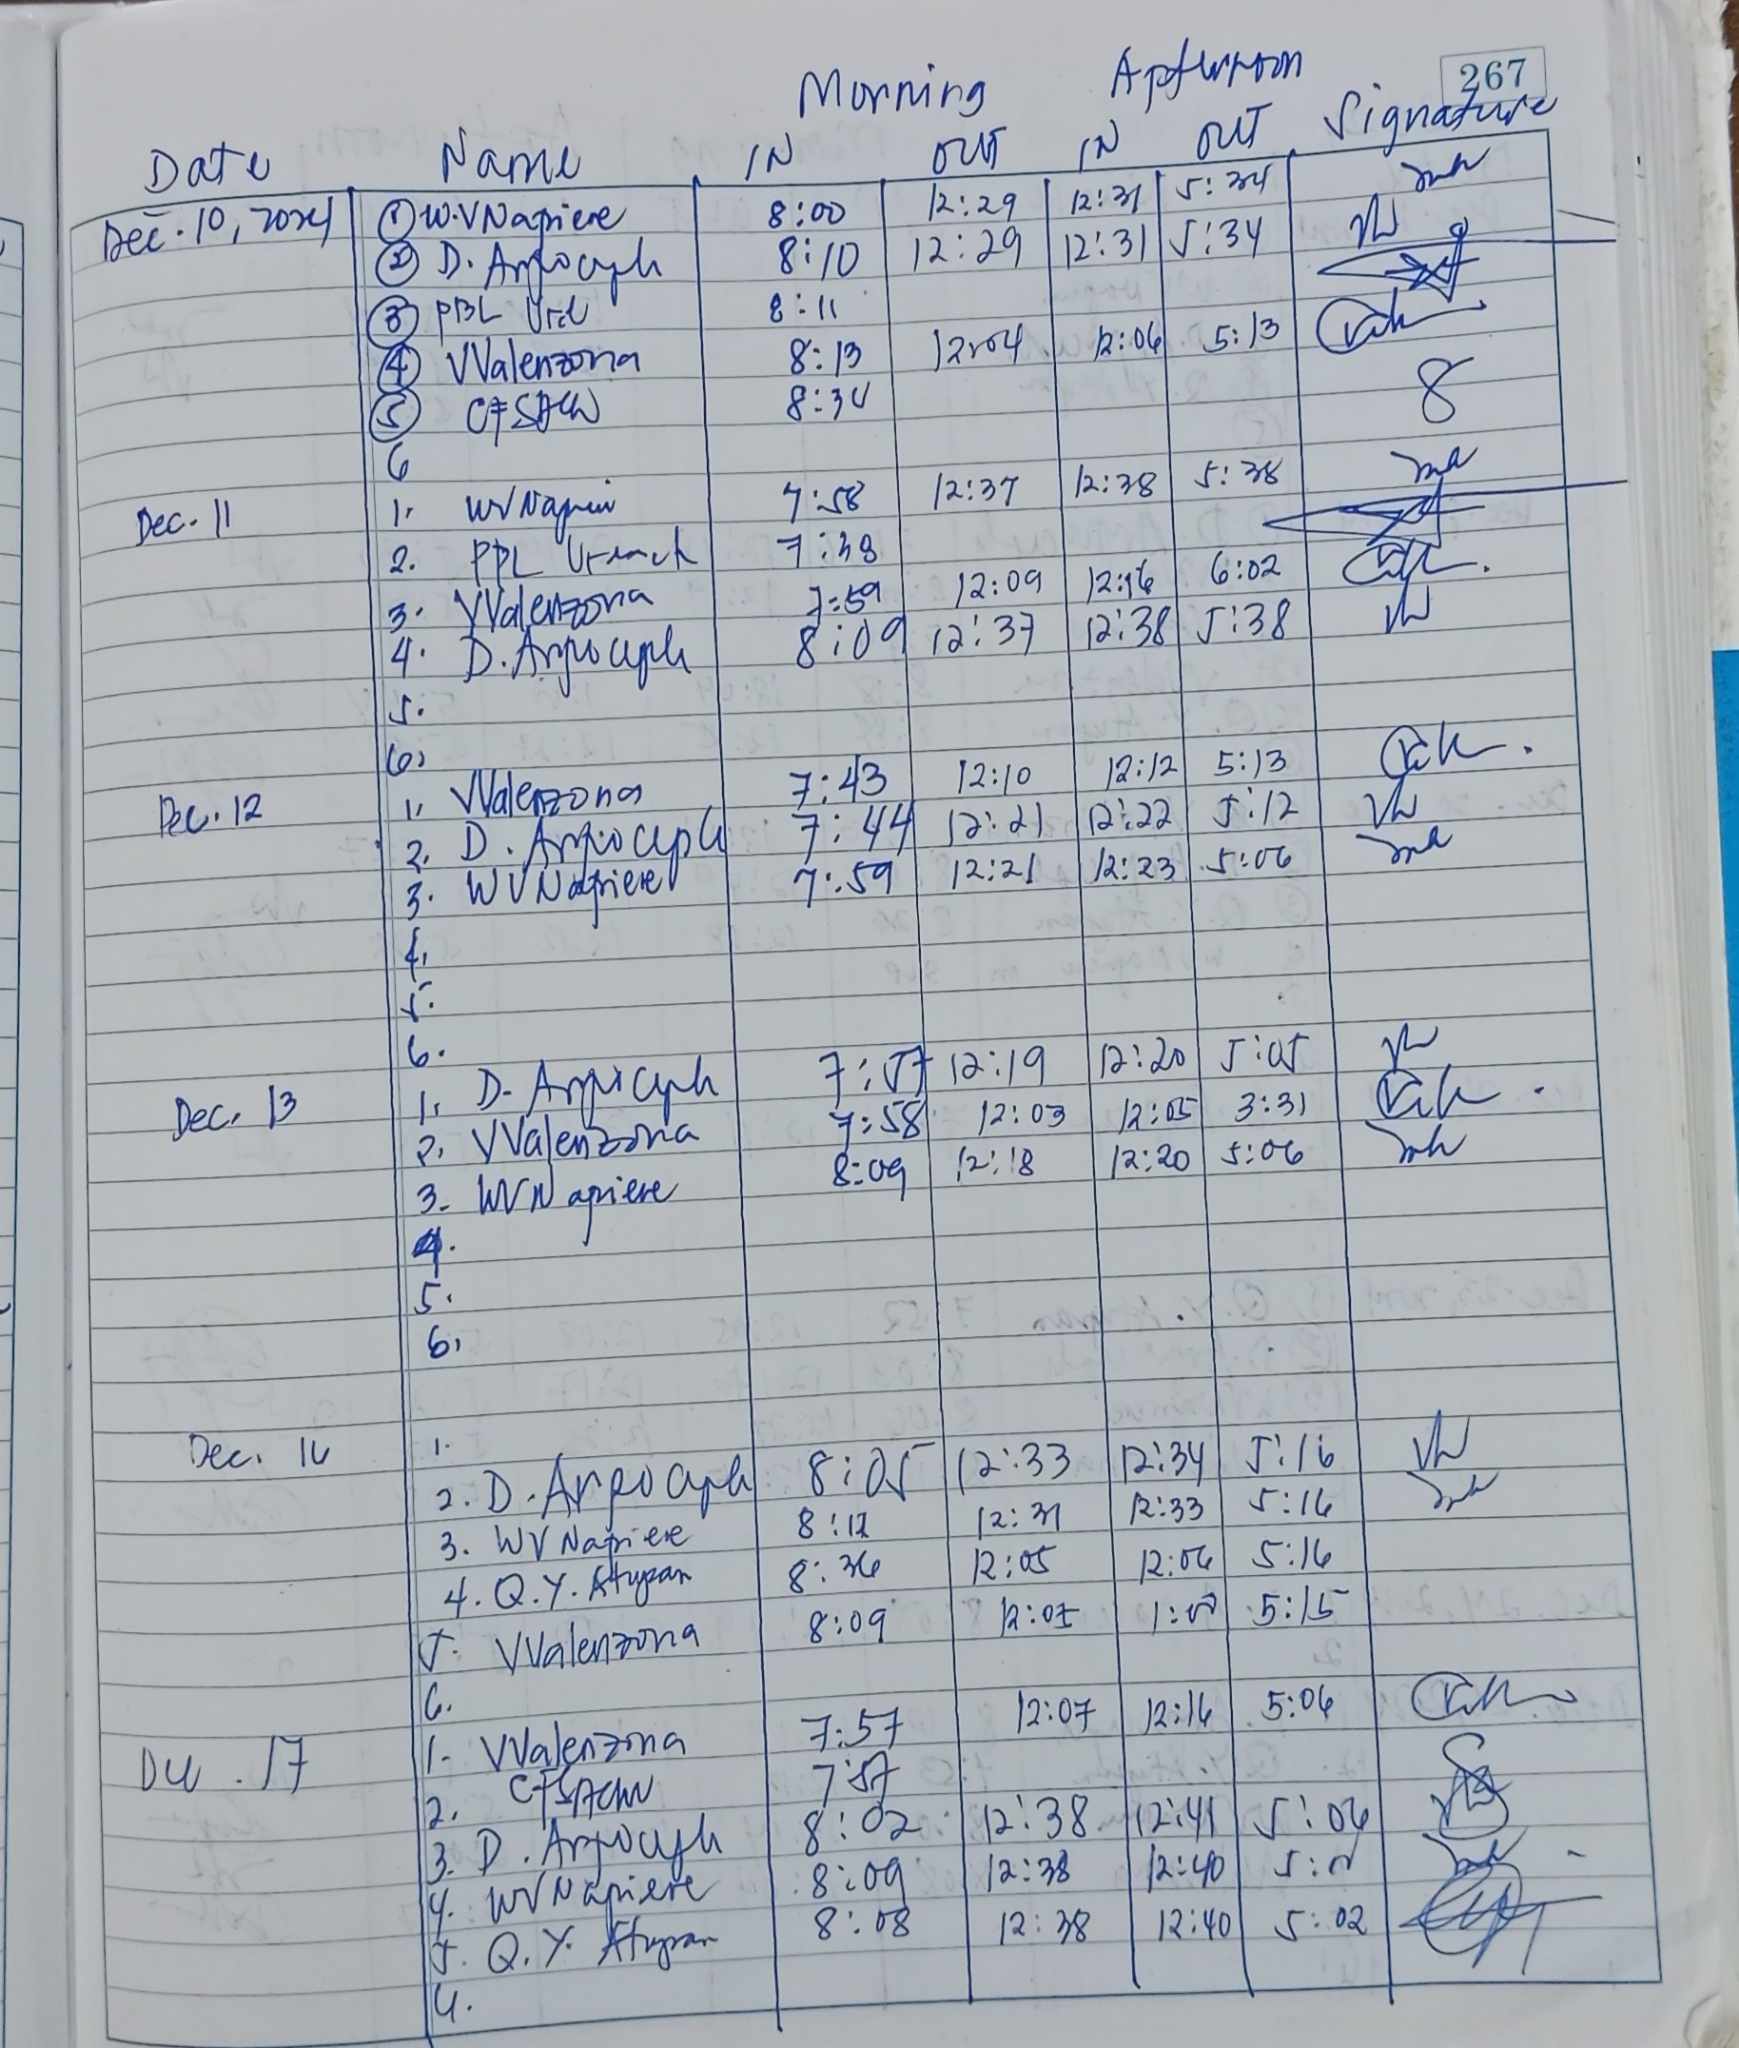 267
Morning Apfternoon
Date Name IN OUT IN OUT Signature
Dec. 10, 2024 1 W.V Napiere 8:00 12:29 12:31 5:34
2 D. 8:10 12:29 12:31 5:34
3 PBL 8:11
4 VValenzona 8:13 12:04 12:06 5:13
5 8:34
6
Dec. 11 1. WV 7:58 12:37 12:38 5:38
2. PBL 7:38
3. VValenzona 7:59 12:09 12:16 6:02
4. D. 8:09 12:37 12:38 5:38
5.
6.
Dec. 12 1. VValenzona 7:43 12:10 12:12 5:13
2. D. 7:44 12:21 12:22 5:12
3. WV Napiere 7:59 12:21 12:23 5:06
4.
5.
6.
Dec. 13 1. D. 7:57 12:19 12:20 5:05
2. VValenzona 7:58 12:03 12:05 3:31
3. WV Napiere 8:09 12:18 12:20 5:06
4.
5.
6.
Dec. 16 1.
2. D. 8:05 12:33 12:34 5:16
3. WV Napiere 8:12 12:31 12:33 5:16
4. Q.Y. 8:36 12:05 12:06 5:16
5. VValenzona 8:09 12:05 5:15
6.
Dec. 17 1. VValenzona 7:57 12:07 12:16 5:06
2. 7:57
3. D. 8:02 12:38 12:41 5:06
4. WV Napiere 8:09 12:38 12:40
5. Q.Y. 8:08 12:38 12:40 5:02